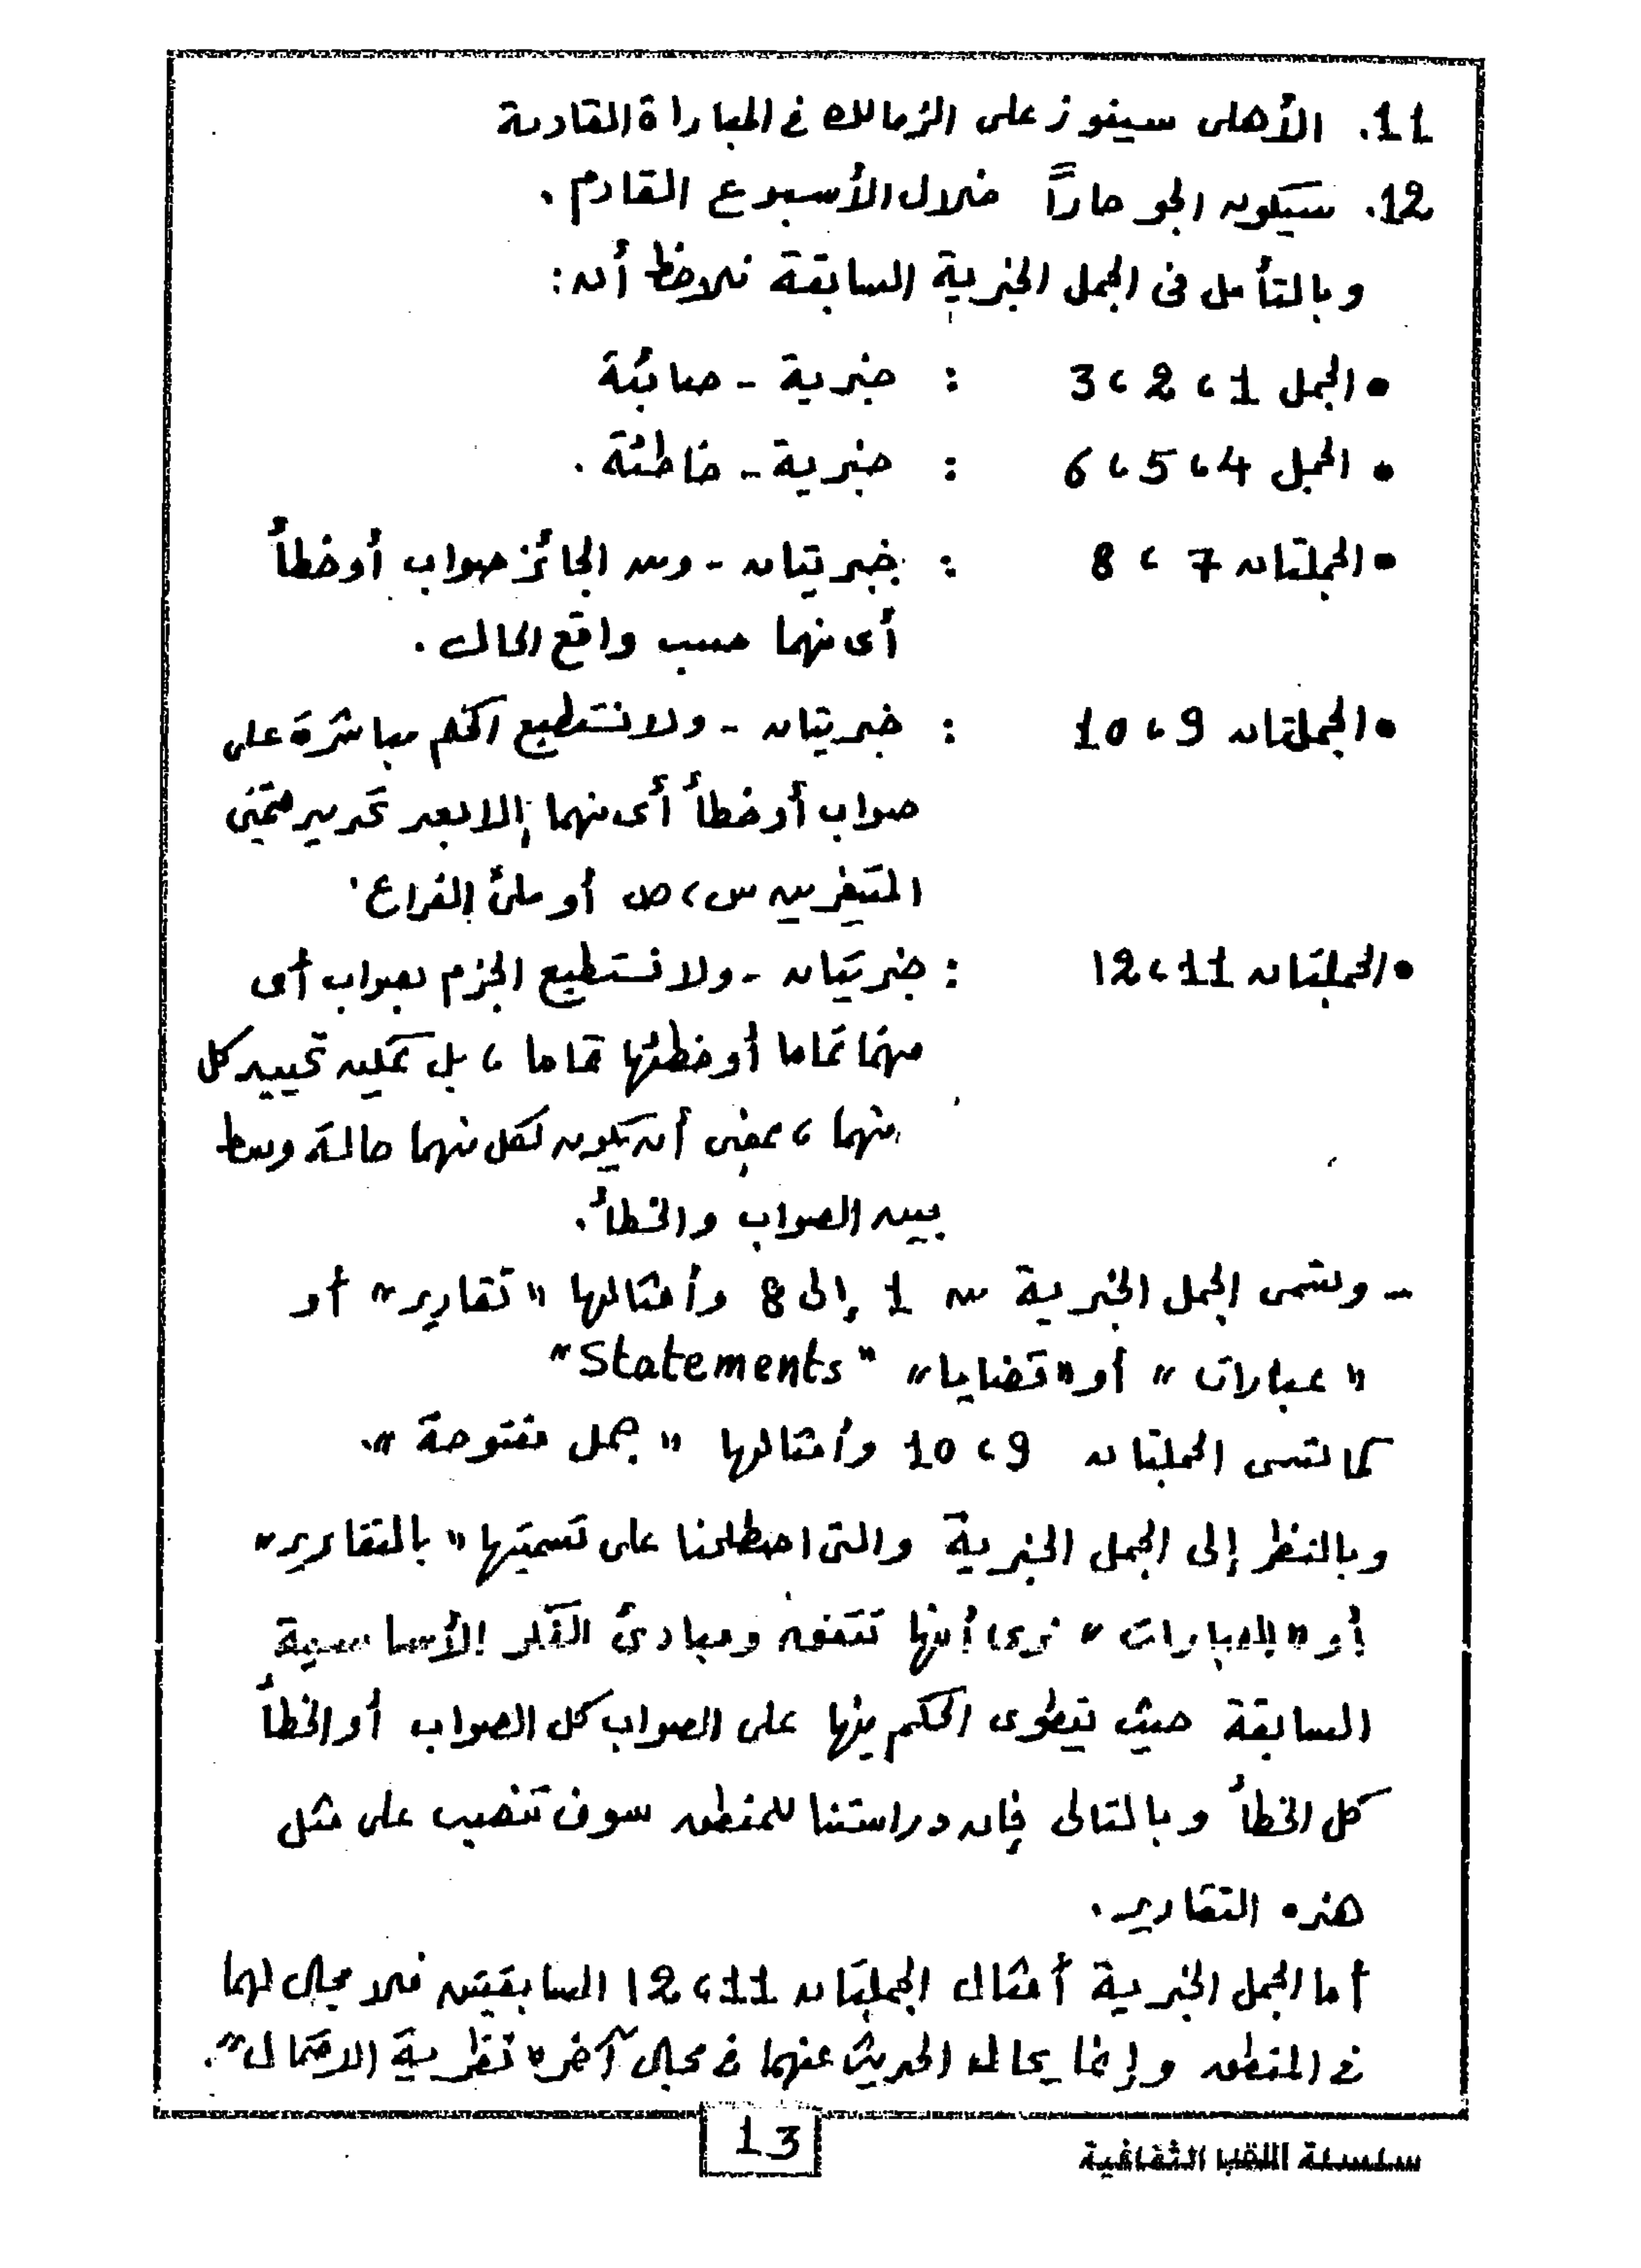 11. الأهلى سيفوز على الزمالك فى المباراة القادمة
12. سيكون الجو حاراً خلال الأسبوع القادم.
وبالتأمل فى الجمل الخبرية السابقة نلاحظ أن:
• الجمل 1، 2، 3 : خبرية - صائبة
• الجمل 4، 5، 6 : خبرية - خاطئة.
• الجملتان 7، 8 : خبريتان - ومن الجائز صواب أو خطأ
أى منهما حسب واقع الحال.
• الجملتان 9، 10 : خبريتان - ولا نستطيع الحكم مباشرة على
صواب أو خطأ أى منهما إلا بعد تحديد قيمتى
المتغيرين س، ص أو ملئ الفراغ.
• الجملتان 11، 12 : خبريتان - ولا نستطيع الجزم بصواب أى
منهما تماما أو خطئها تماما، بل يمكن تحييد كل
منهما، بمعنى أن يكون لكل منهما حالة وسط
بين الصواب والخطأ.
- وتسمى الجمل الخبرية من 1 إلى 8 وأمثالها "تقارير" أو
"عبارات" أو "قضايا" "Statements"
كما تسمى الجملتان 9، 10 وأمثالها "جمل مفتوحة".
وبالنظر إلى الجمل الخبرية والتى اصطلحنا على تسميتها "بالتقارير"
أو "بالعبارات" نرى أنها تتفق ومبادئ الفكر الأساسية
السابقة حيث ينطوى الحكم فيها على الصواب كل الصواب أو الخطأ
كل الخطأ وبالتالى فإن دراستنا للمنطق سوف تنصب على مثل
هذه التقارير.
أما الجمل الخبرية أمثال الجملتان 11، 12 السابقتين فلا مجال لهما
فى المنطق وإنما يحال الحديث عنهما فى مجال آخر "نظرية الاحتمال".
13
سلسلة اللقب الثقافية